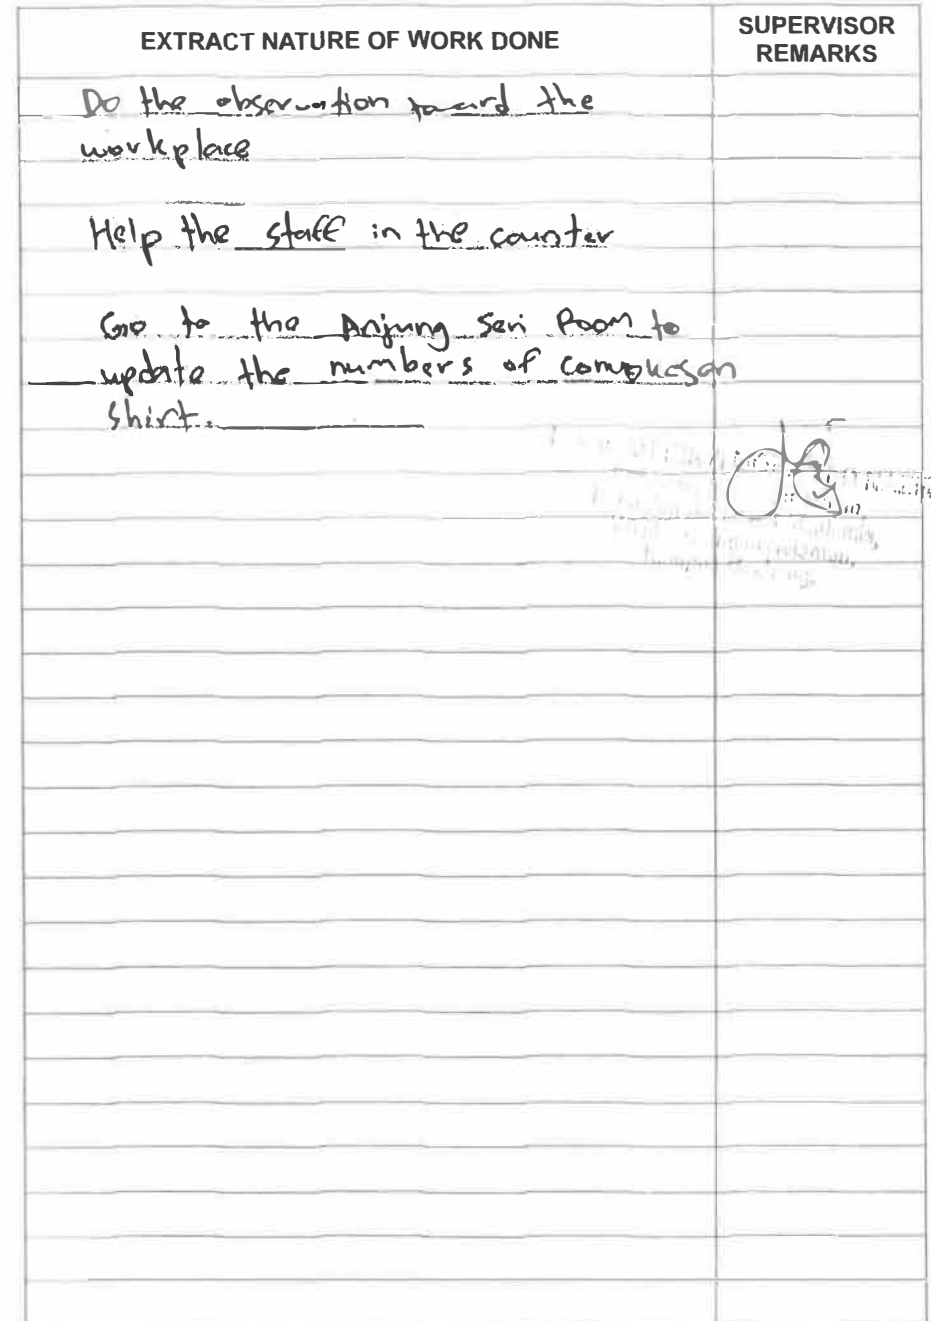 EXTRACT NATURE OF WORK DONE
SUPERVISOR
REMARKS
Do the observation toward the
workplace
Help the staff in the counter
Go to the Anjung Seri Room to
update the numbers of
shirt.